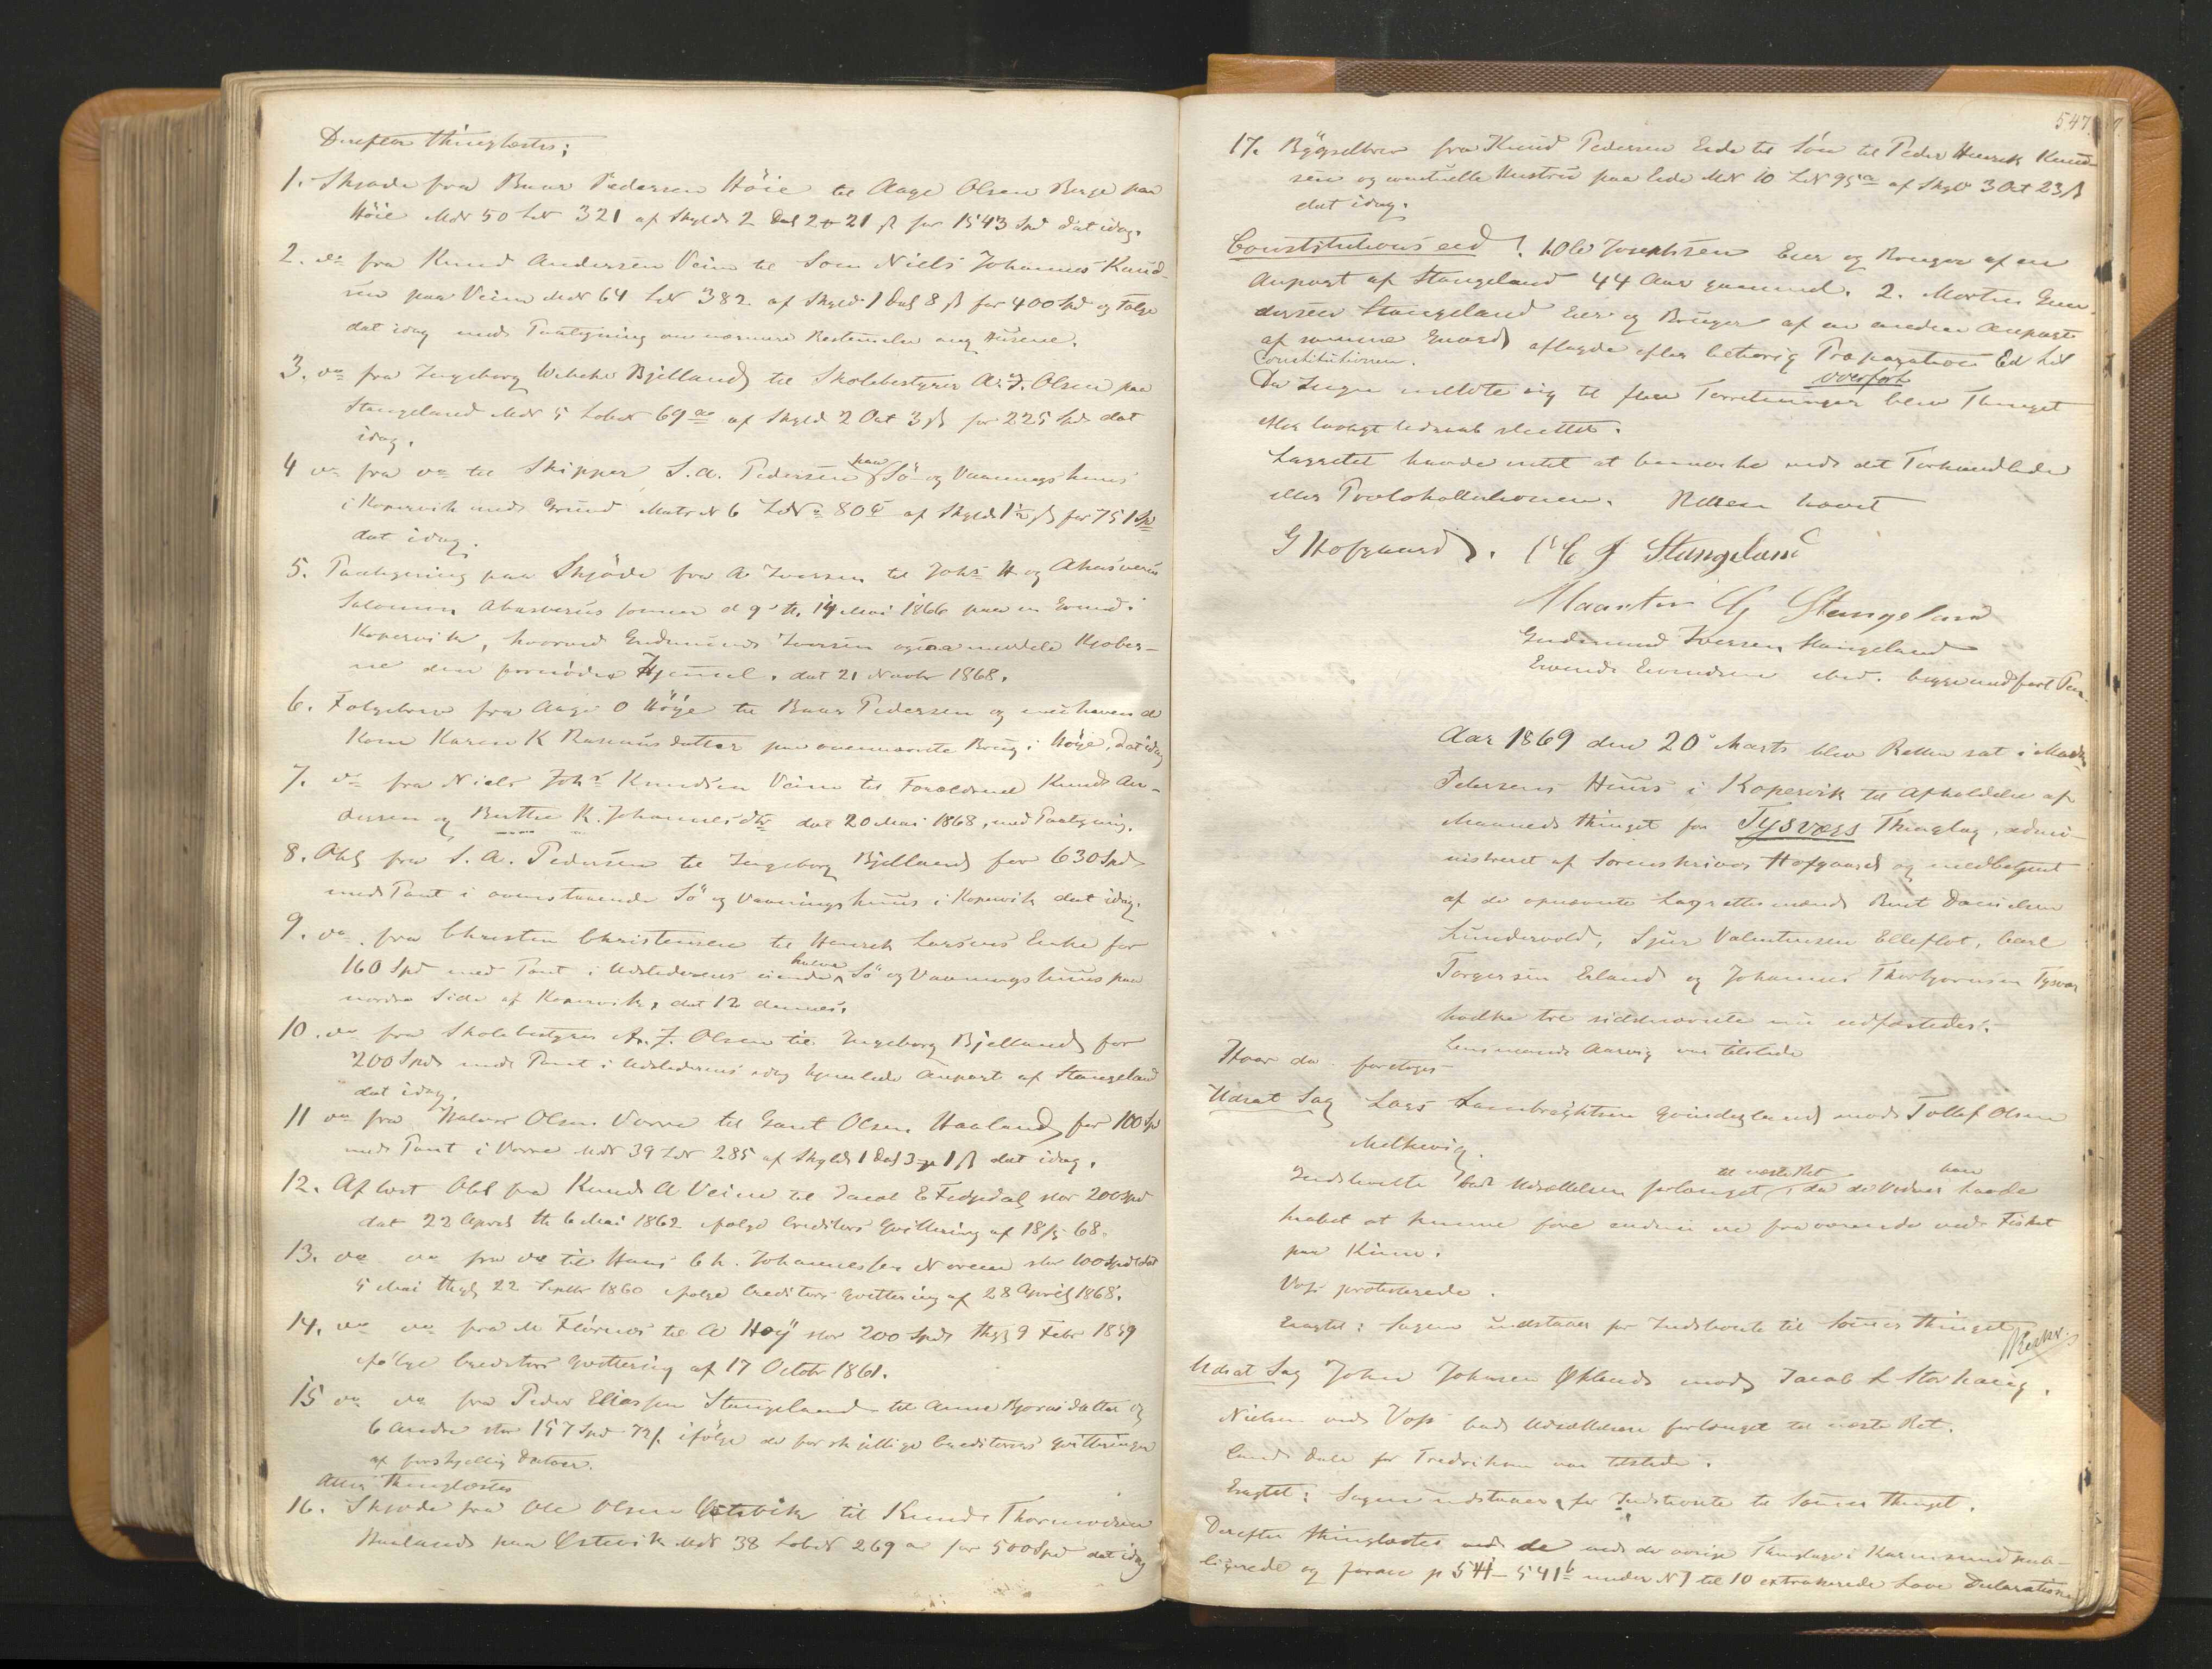 Derefter thinglæstes;
1. Skjøde fra Baar Pedersen Höie til Aage Olsen Berge paa
Höie MN 50 LN 321 af Skyld 2 Dal 2 21 ß for 1543 Spd dat idag.
2. do fra Knud Andersen Veim til Søn Niels Johannes Knud-
sen paa Veim MN 64 LN 382 af Skyld 1 Dal 8 ß for 400 Spd og Følge
dat idag med Paategning om nærmere Bestemmelse ang Husene.
3. do fra Ingeborg Bjelland til Skolebestyrer A. J. Olsen paa
Stangeland MN 5 LobeN 69 af Skyld 2 Ort 3 ß for 225 Spd dat
idag.
4 do fra do til Skipper S. A. Pedersen paa Sö- og Vaaningshuus
i Kopervik med Grund MatrN 6 LN 80 af Skyld 1 ß for 751 Sp
dat idag.
5. Paategning paa Skjöde fra A Iversen til Johs H og Ahasverus
Salomon Ahasverus sønner d 9 th. 14 Mai 1866 paa en Grund i
Kopervik, hvorved Gudmund Iversen ogsaa meddele Kjøber-
ne den fornödne Hjemmel. dat 21 Novbr 1868.
6. Følgebrev fra Aage O Höye til Baar Pedersen og
Kone Karen K Rasmusdatter paa ovennævnte Brug i Höye, dat idag
7. do fra Niels Johs Knudsen Veim til Forældrene Knud An-
dersen og Berthe K. Johannesdtr dat 20 Mai 1868, med Paategning.
8. Obl fra S. A. Pedersen til Ingeborg Bjelland for 630 Spd
med Pant i ovenstaaende Sö og Vaaningshuus i Kopervik dat idag.
9. do fra Christen Christensen til Henrik Larsens Enke for
160 Spd med Pant i Udstederens eiende halve Sö og Vaaningshuus paa
nordre Side af Kopervik, dat 12 dennes.
10. do fra Skolebestyrer A. J. Olsen til Ingeborg Bjelland for
200 Spd med Pant i Udstederens idag hjemlede Anpart af Stangeland
dat idag.
11 do fra Halvor Olsen Vorre til Gaut Olsen Haaland for 100 Sp
med Pant i Vorre MN 39 LN 285 af Skyld 1 Dal 3 1 ß dat idag.
12. Aflæst Obl fra Knud A Veim til Jacob E Fedjedal stor 200 Spd
dat 22 April th 6 Mai 1862 ifølge Creditors Qvittering af 18/5 68.
13. do do fra do til Hans Ch. Johannessen Noreim stor 100 Spd dat
5 Mai thgl 22 Septbr 1860 ifølge Creditors Qvittering af 28 April 1868.
14. do do fra M Flörnæs til A Höy stor 200 Spd thgl 9 Febr 1859
ifölge Creditors Qvittering af 17 Octobr 1861.
15 do do fra Peder Eliassen Stangeland til Anne Bjornsdatter og
6 Andre stor 157 Spd 72 ß. ifölge de forskjellige Creditorers Qvitteringer
af forskjellig Datoer.
Atter thinglæstes
16. Skjøde fra Ole Olsen Østevik til Knud Thormodsen
Haaland paa Østevik MN 38 LobeN 269 a for 500 Spd dat idag
547.
17. Bygselbrev fra Knud Pedersen Eide til Sön til Peder Henrik Knud-
sen og eventuelle Hustru paa Eide MN 10 LN 95a af Skyld 3 Ort 23 ß
dat idag.
Constitutions eed! 1. Ole Josephsen Eier og Bruger af en
Anpart af Stangeland 44 Aar gammel. 2. Morten Gun-
dersen Stangeland Eier og Bruger af en anden Anpart
af samme Gaard aflagde efter behørig Præparation Ed til
Constitutionen.
overfört
Da Ingen meldte sig til flere Forretninger blev Thinget
efter lovligt Udraab sluttet.
Lagrettet havde intet at bemærke ved det Forhandlede
eller Protokollationen. Retten hævet
G Hofgaard. O J Stangeland
Maarten G Stangeland
Gudmund Iversen Stangeland
Evend Evendsen ibid. begge med ført Pen.
Aar 1869 den 20 Marts blev Retten sat i
Pedersens Huus i Kopervik til Afholdelse af
Maanedsthinget for Tysvær Thinglag, admi-
nistreret af Sorenskriver Hofgaard og medbetjent
af de opnævnte Lagrettesmænd Bent Danielsen
Lundervold, Sjur Valentinsen Elleflot, Carl
Torgersen Erland og Johannes Thorbjornsen Tysvær
hvilke tre sidstnævnte nu edfæstedes.
Lensmand Aarvig var tilstede
Hvor da foretoges
Udsat Sag Lars Lambregtsen Qvindesland mod Tollef Olsen
Melkevig.
til næste Ret han
Indstevnte bad Udsættelsen forlænget, da de Vidner havde
haabet at kunne føre endnu ere fraværende ved Fisket
paa Kinn.
Voss protesterede.
Eragtet: Sagen udstaaer for Indstevnte til Sommerthinget
Udsat Sag John Johnsen Økland mod Jacob L Storhaug.
Nielsen ved Voss bad Udsættelsen forlænget til næste Ret.
Cand. Dahl for Fredriksen var tilstede.
Eragtet: Sagen udstaaer for Indstevnte til Sommerthinget.
Derefter thinglæstes med de ved de øvrige Thinglag i Karmsund pub-
licerede og foran p 541 - 541b under N 1 til 10 extraherede Love Declarationer